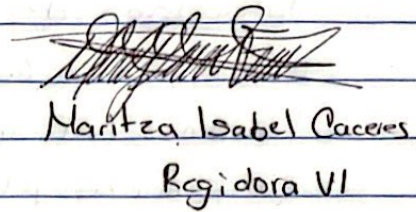 Maritza Isabel Caceres
Regidora VI